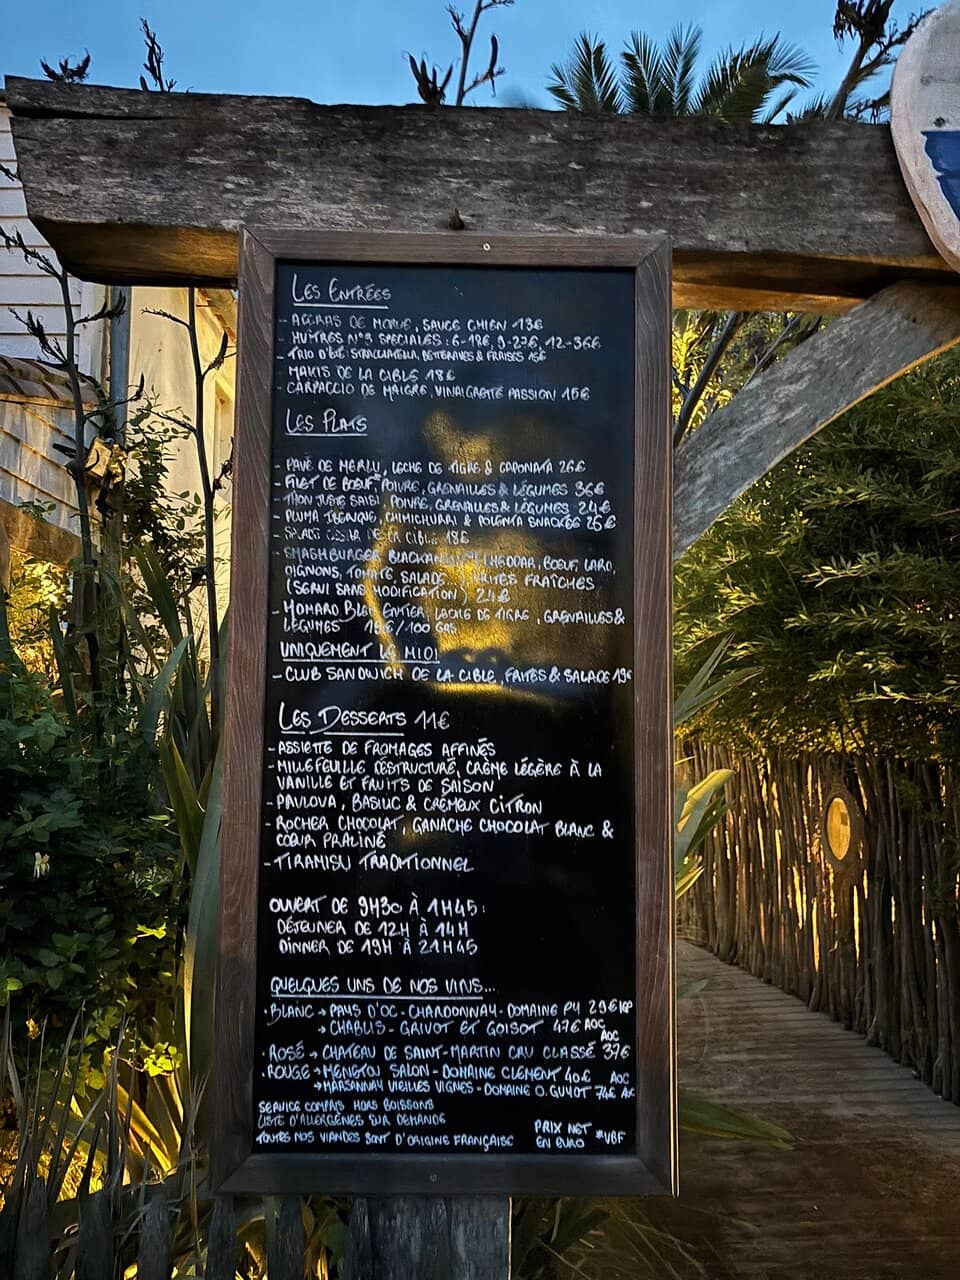 LES ENTRÉES
- ACCRAS DE MORUE, SAUCE CHIEN 13€
- HUÎTRES N°3 SPÉCIALES : 6-18€, 9-27€, 12-36€
- TRIO D'ÉTÉ: STRACCIATELLA, BETTERAVES & FRAISES 15€
MAKIS DE LA CIBLE 18€
- CARPACCIO DE MAIGRE, VINAIGRETTE PASSION 16€
LES PLATS
- PAVÉ DE MERLU, LECHE DE TIGRE & CAPONATA 26€
- FILET DE BŒUF, POIVRE, GRENAILLES & LÉGUMES 36€
- THON JUSTE SAISI, POIVRE, GRENAILLES & LÉGUMES 24€
- PLUMA IBÉRIQUE, CHIMICHURRI & POLENTA SNACKÉE 26€
- SALADE DE LA CIBLE 18€
- SMASH BURGER CHEDDAR, BŒUF, LARD,
OIGNONS, TOMATE, SALADE FRITES FRAÎCHES
(SERVI SANS MODIFICATION) 24€
- HOMARD BLEU ENTIER, LECHE DE TIGRE, GRENAILLES &
LÉGUMES /100 GRS
UNIQUEMENT LE MIDI
- CLUB SANDWICH DE LA CIBLE, FRITES & SALADE 19€
LES DESSERTS 11€
- ASSIETTE DE FROMAGES AFFINÉS
- MILLEFEUILLE DESTRUCTURÉ, CRÈME LÉGÈRE À LA
VANILLE ET FRUITS DE SAISON
- PAVLOVA, BASILIC & CRÉMEUX CITRON
- ROCHER CHOCOLAT, GANACHE CHOCOLAT BLANC &
CŒUR PRALINÉ
- TIRAMISU TRADITIONNEL
OUVERT DE 9H30 À 1H45:
DÉJEUNER DE 12H À 14H
DINNER DE 19H À 21H45
QUELQUES UNS DE NOS VINS...
• BLANC → PAYS D'OC - CHARDONNAY - DOMAINE PY 29€ IGP
→ CHABLIS - GRIVOT ET GOISOT 47€ AOC
• ROSÉ → CHATEAU DE SAINT-MARTIN CRU CLASSÉ 37€ AOC
• ROUGE → MENETOU SALON - DOMAINE CLÉMENT 40€ AOC
→ MARSANNAY VIEILLES VIGNES - DOMAINE O. GUYOT 74€ AOC
SERVICE COMPRIS HORS BOISSONS
LISTE D'ALLERGÈNES SUR DEMANDE
TOUTES NOS VIANDES SONT D'ORIGINE FRANÇAISE
PRIX NET
EN EURO *VBF